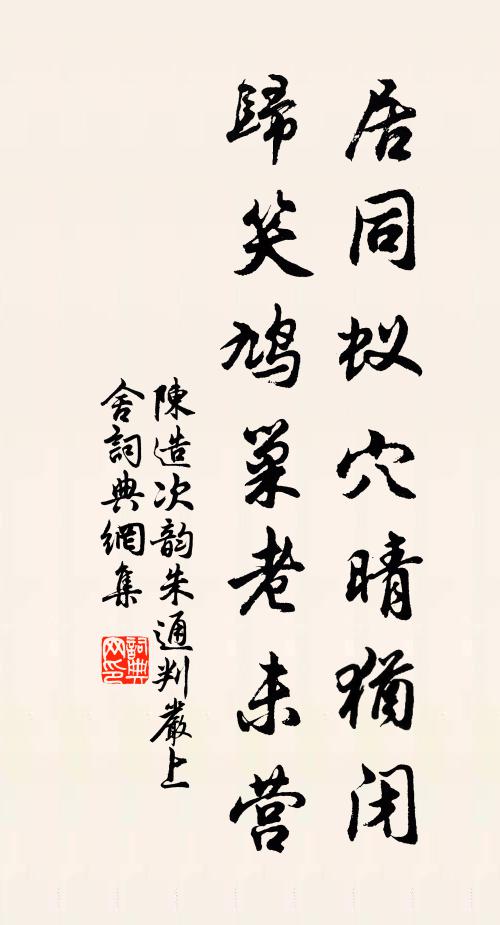 居同蚁穴晴犹闭
歸笑鸠巢老未营
陳造次韵朱通判嚴上
舍詞典網集
詞典网印